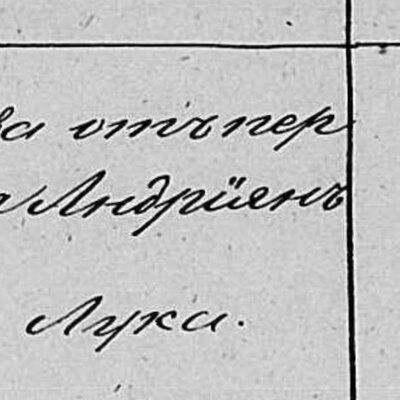 ва отъ пер
Андріянъ
Лука.